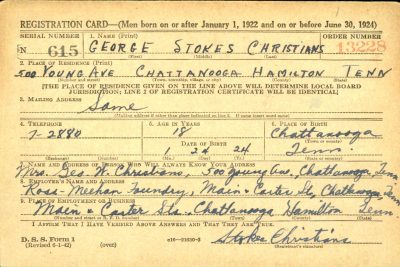 REGISTRATION CARD—(Men born on or after January 1, 1922 and on or before June 30, 1924)
SERIAL NUMBER 1. NAME (Print) ORDER NUMBER
N 615 GEORGE STOKES CHRISTIANS 13228
(First) (Middle) (Last)
2. PLACE OF RESIDENCE (Print)
500 YOUNG AVE CHATTANOOGA HAMILTON TENN
(Number and street) (Town, township, village, or city) (County) (State)
[THE PLACE OF RESIDENCE GIVEN ON THE LINE ABOVE WILL DETERMINE LOCAL BOARD
JURISDICTION; LINE 2 OF REGISTRATION CERTIFICATE WILL BE IDENTICAL]
3. MAILING ADDRESS
Same
(Mailing address if other than place indicated on line 2. If same insert word same)
4. TELEPHONE 5. AGE IN YEARS 6. PLACE OF BIRTH
7-2880 18 Chattanooga
DATE OF BIRTH (Town or county)
1 24 24 Tenn.
(Mo.) (Day) (Yr.) (State or country)
7. NAME AND ADDRESS OF PERSON WHO WILL ALWAYS KNOW YOUR ADDRESS
Mrs. Geo. W. Christians, 500 Young Ave, Chattanooga, Tenn
8. EMPLOYER'S NAME AND ADDRESS
Ross-Meehan Foundry, Main & Carter Sts, Chattanooga, Tenn
9. PLACE OF EMPLOYMENT OR BUSINESS
Main & Carter Sts., Chattanooga Hamilton Tenn
(Number and street or R. F. D. number) (Town) (County) (State)
I AFFIRM THAT I HAVE VERIFIED ABOVE ANSWERS AND THAT THEY ARE TRUE.
D. S. S. Form 1
(Revised 6-1-42) (over) Stokes Christians
(Registrant's signature)